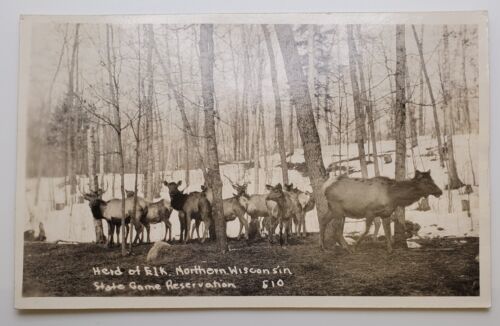 Herd of Elk. Northern Wisconsin
State Game Reservation 510